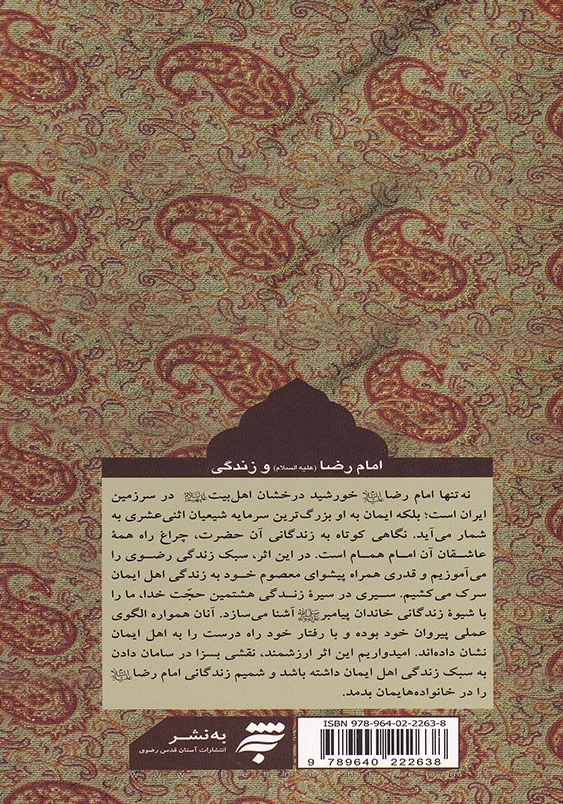 امام رضا (علیه السلام) و زندگی
نه تنها امام رضا علیه‌السلام خورشید درخشان اهل‌بیت علیهم‌السلام در سرزمین
ایران است؛ بلکه ایمان به او بزرگ‌ترین سرمایه شیعیان اثنی‌عشری به
شمار می‌آید. نگاهی کوتاه به زندگانی آن حضرت، چراغ راه همهٔ
عاشقان آن امام همام است. در این اثر، سبک زندگی رضوی را
می‌آموزیم و قدری همراه پیشوای معصوم خود به زندگی اهل ایمان
سرک می‌کشیم. سیری در سیرهٔ زندگی هشتمین حجّت خدا، ما را
با شیوهٔ زندگانی خاندان پیامبر آشنا می‌سازد. آنان همواره الگوی
عملی پیروان خود بوده و با رفتار خود راه درست را به اهل ایمان
نشان داده‌اند. امیدواریم این اثر ارزشمند، نقشی بسزا در سامان دادن
به سبک زندگی اهل ایمان داشته باشد و شمیم زندگانی امام رضا علیه‌السلام
را در خانواده‌هایمان بدمد.
به نشر
انتشارات آستان قدس رضوی
ISBN 978-964-02-2263-8
9 789640 222638